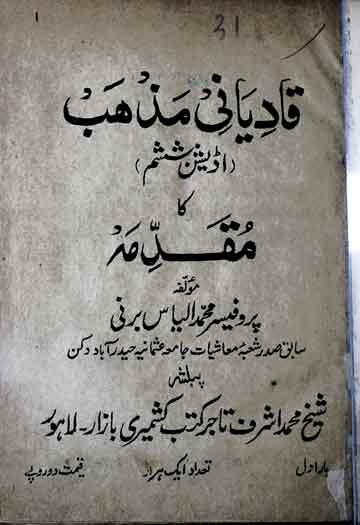 1
31
قادیانی مذہب
(اڈیشن ششم)
کا
مقدمہ
مؤلفہ
پروفیسر محمد الیاس برنی
سابق صدر شعبۂ معاشیات جامعہ عثمانیہ حیدرآباد دکن
پبلشر
شیخ محمد اشرف تاجر کتب کشمیری بازار - لاہور
بار اول تعداد ایک ہزار قیمت دو روپے